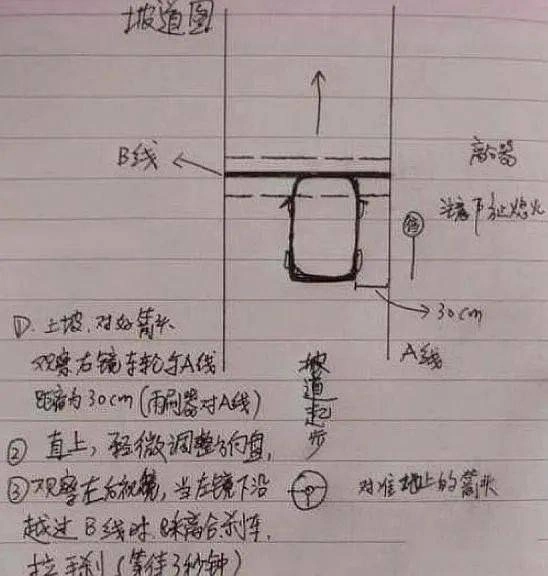 坡道图
B线
离合器
注意防止熄火
停
30cm
A线
① 上坡，对好箭头
观察右镜车轮与A线
距离为30cm（雨刷器对A线）
坡道起步
② 直上，轻微调整方向盘，
③ 观察左后视镜，当左镜下沿
对准地上的箭头
越过B线时，踩离合刹车，
拉手刹（等待3秒钟）